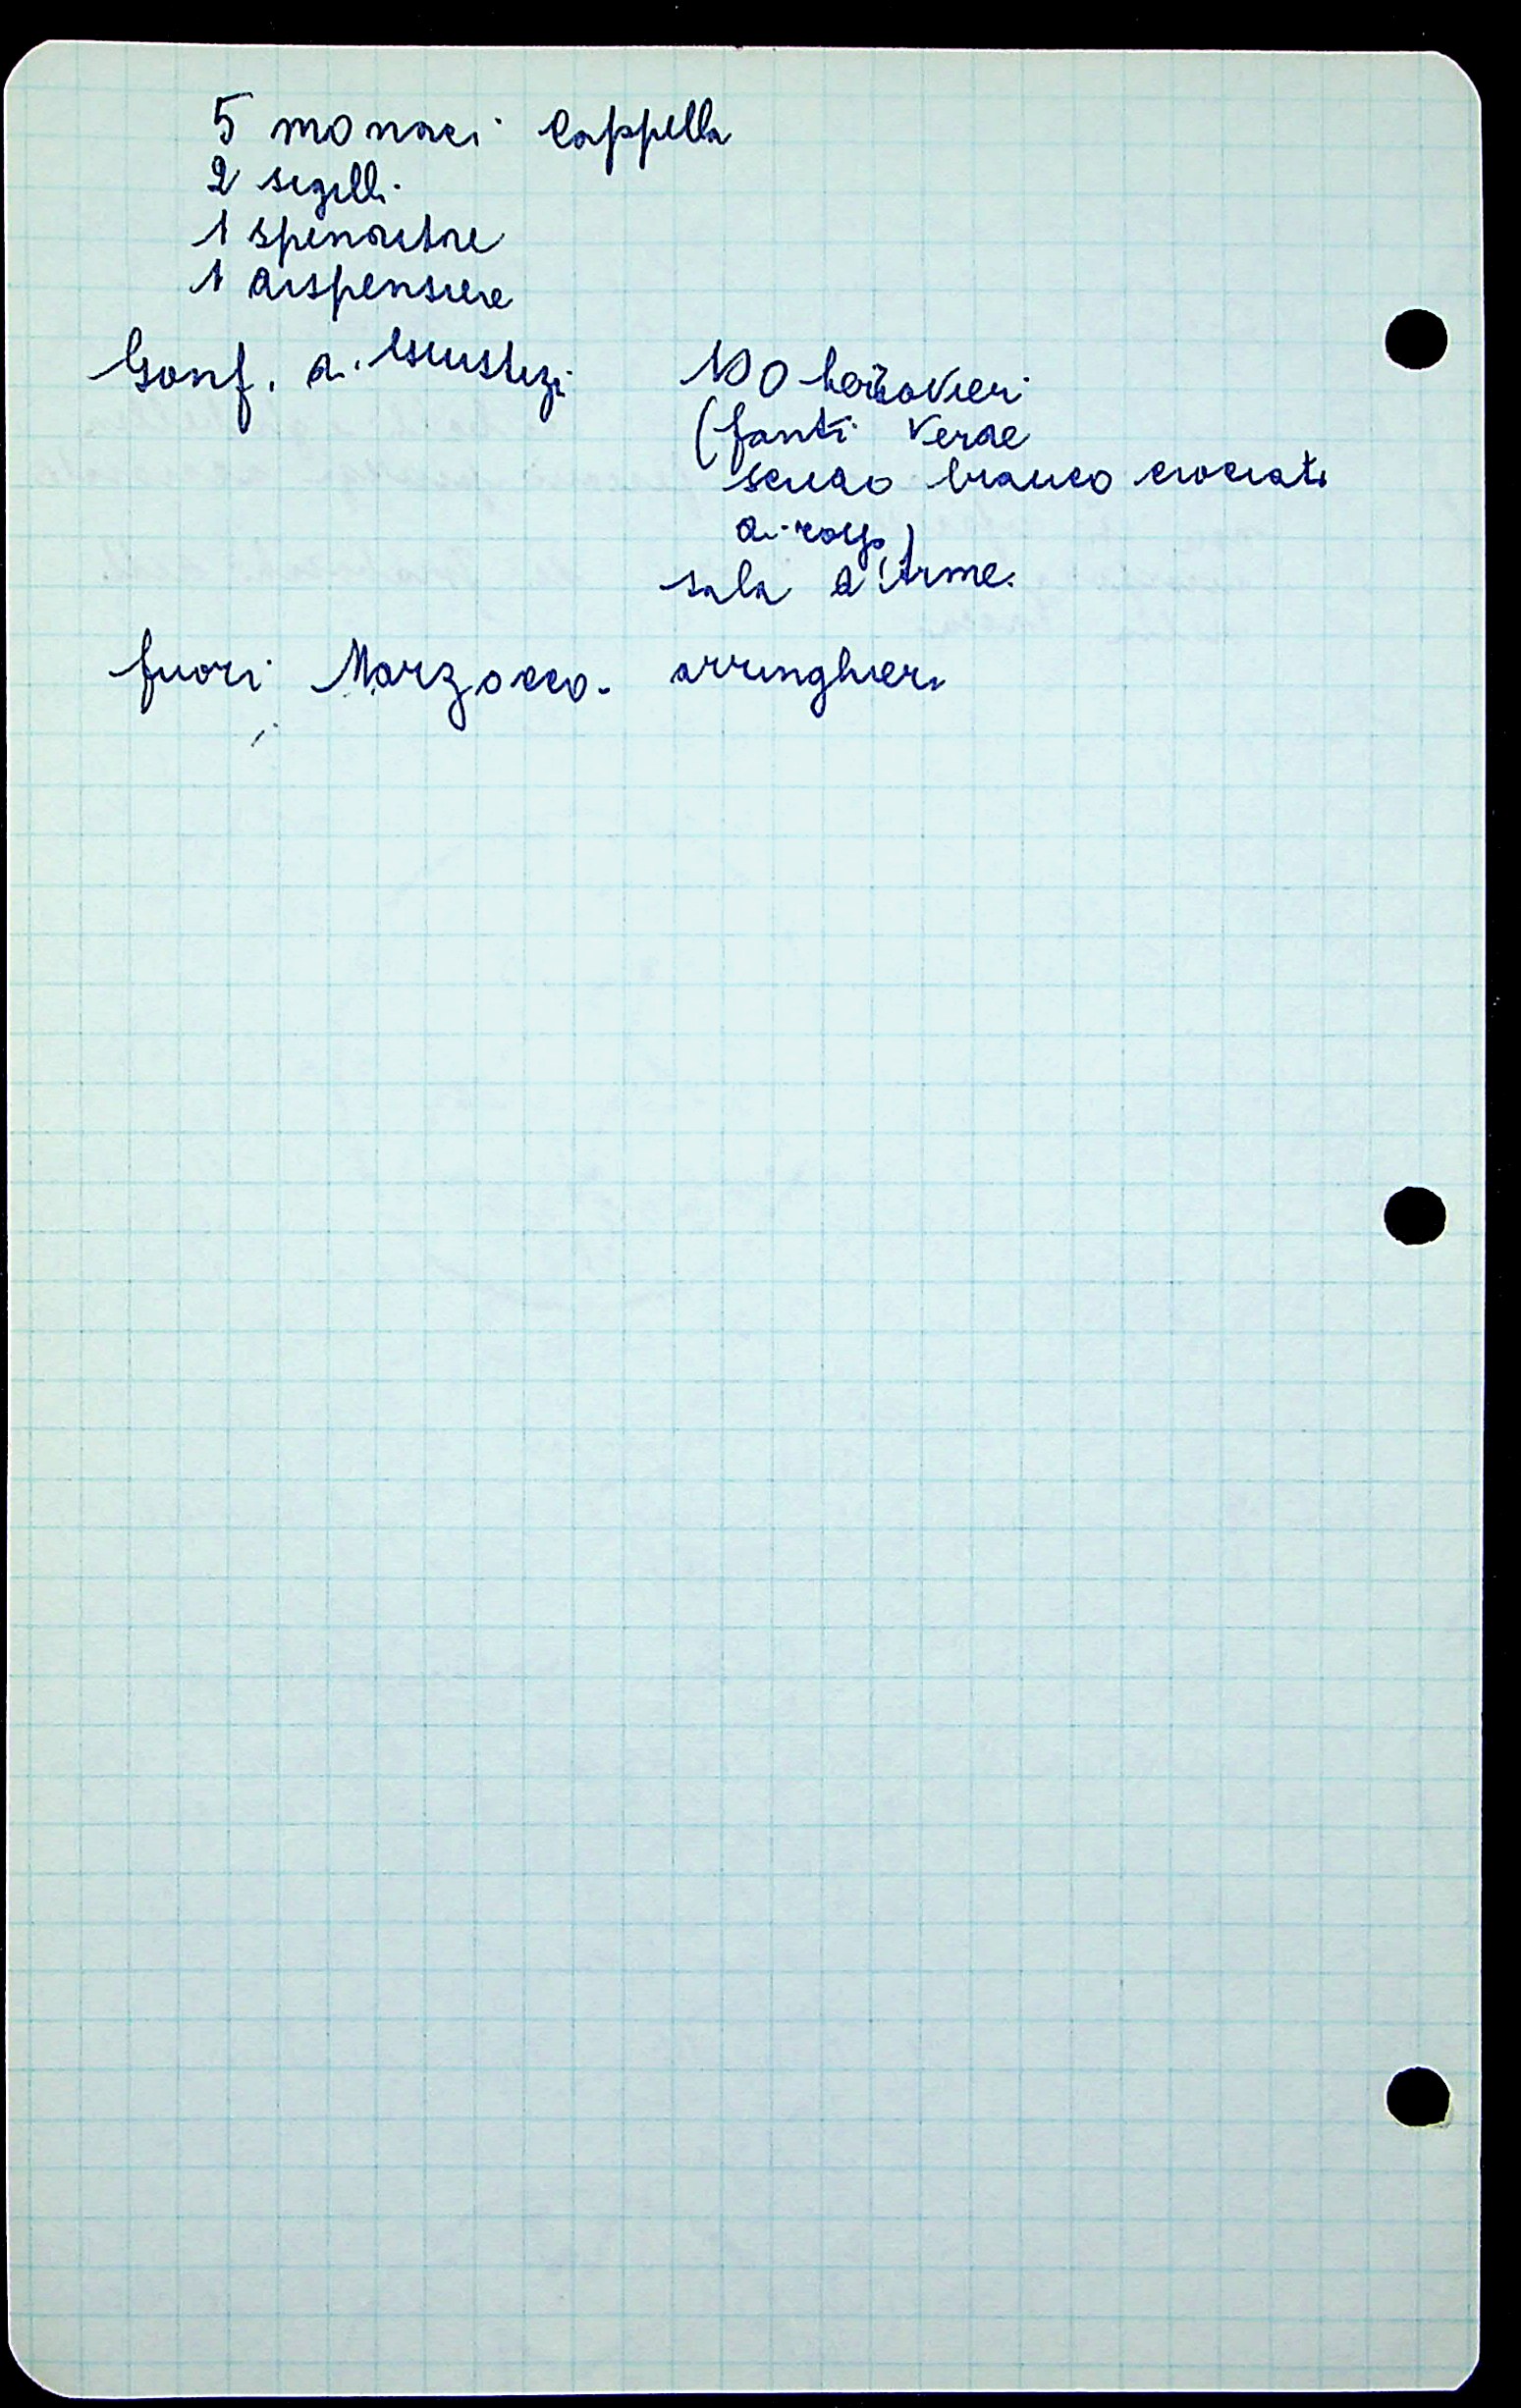 5 monaci cappella
2 sigilli
1 spenditore
1 dispensiere
Gonf. di Giustizi 100 berrovieri
(fanti verde
scudo bianco crociati
di rosso)
sala d'Arme.
fuori Marzocco. arringhieri